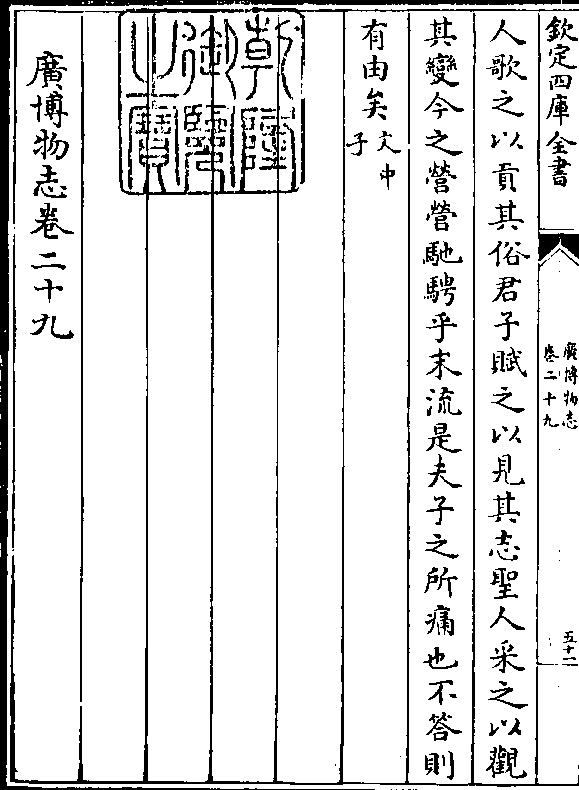 欽定四庫全書
廣博物志
卷二十九
五十二
人歌之以貢其俗君子賦之以見其志聖人采之以觀
其變今之營營馳騁乎末流是夫子之所痛也不答則
有由矣文中
子
乾隆
御覽
之寶
廣博物志卷二十九